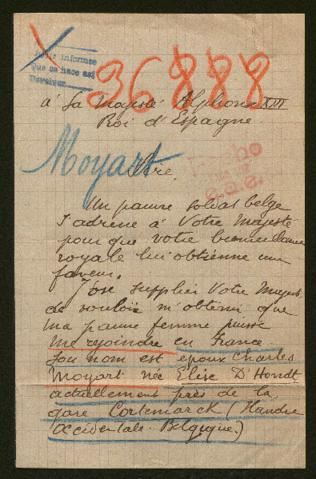 informar
que se hace así
36888
à Sa Majesté Alphonse XIII
Roi d'Espagne
Moyart
Sire,
Hecho
Un pauvre soldat belge
s'adresse à Votre Majesté
pour que votre
royale lui obtienne une
faveur.
J'ose supplier Votre Majesté
de vouloir m'obtenir que
ma pauvre femme puisse
me rejoindre en France
Son nom est épouse Charles
Moyart née Elise D'Hondt
actuellement près de la
gare Cortemarck (Flandre
Occidentale-Belgique)